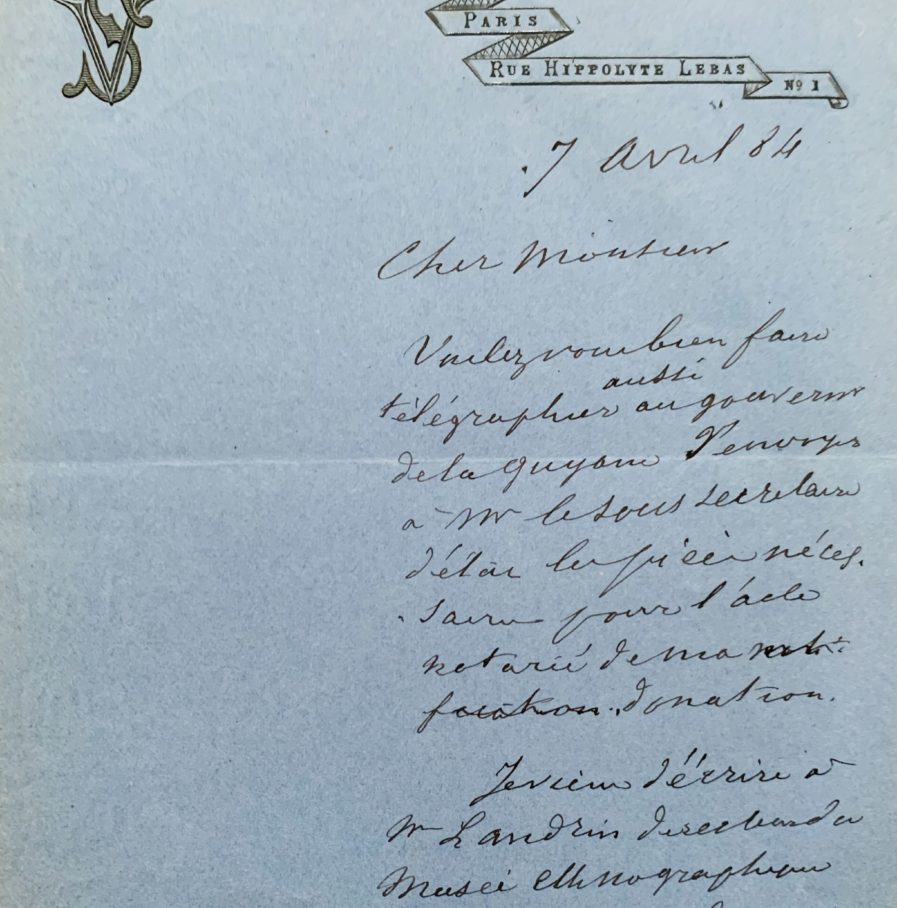 VS
PARIS
RUE HIPPOLYTE LEBAS
No 1
7 Avril 84
Cher Monsieur
Voulez vous bien faire
aussi
télégraphier au gouverneur
de la Guyane d'envoyer
à Mr le sous secretaire
d'état les pièces néces-
saires pour l'acte
notarié de ma
donation.
Je viens d'écrire à
Mr Landrin directeur du
Musée Ethnographique